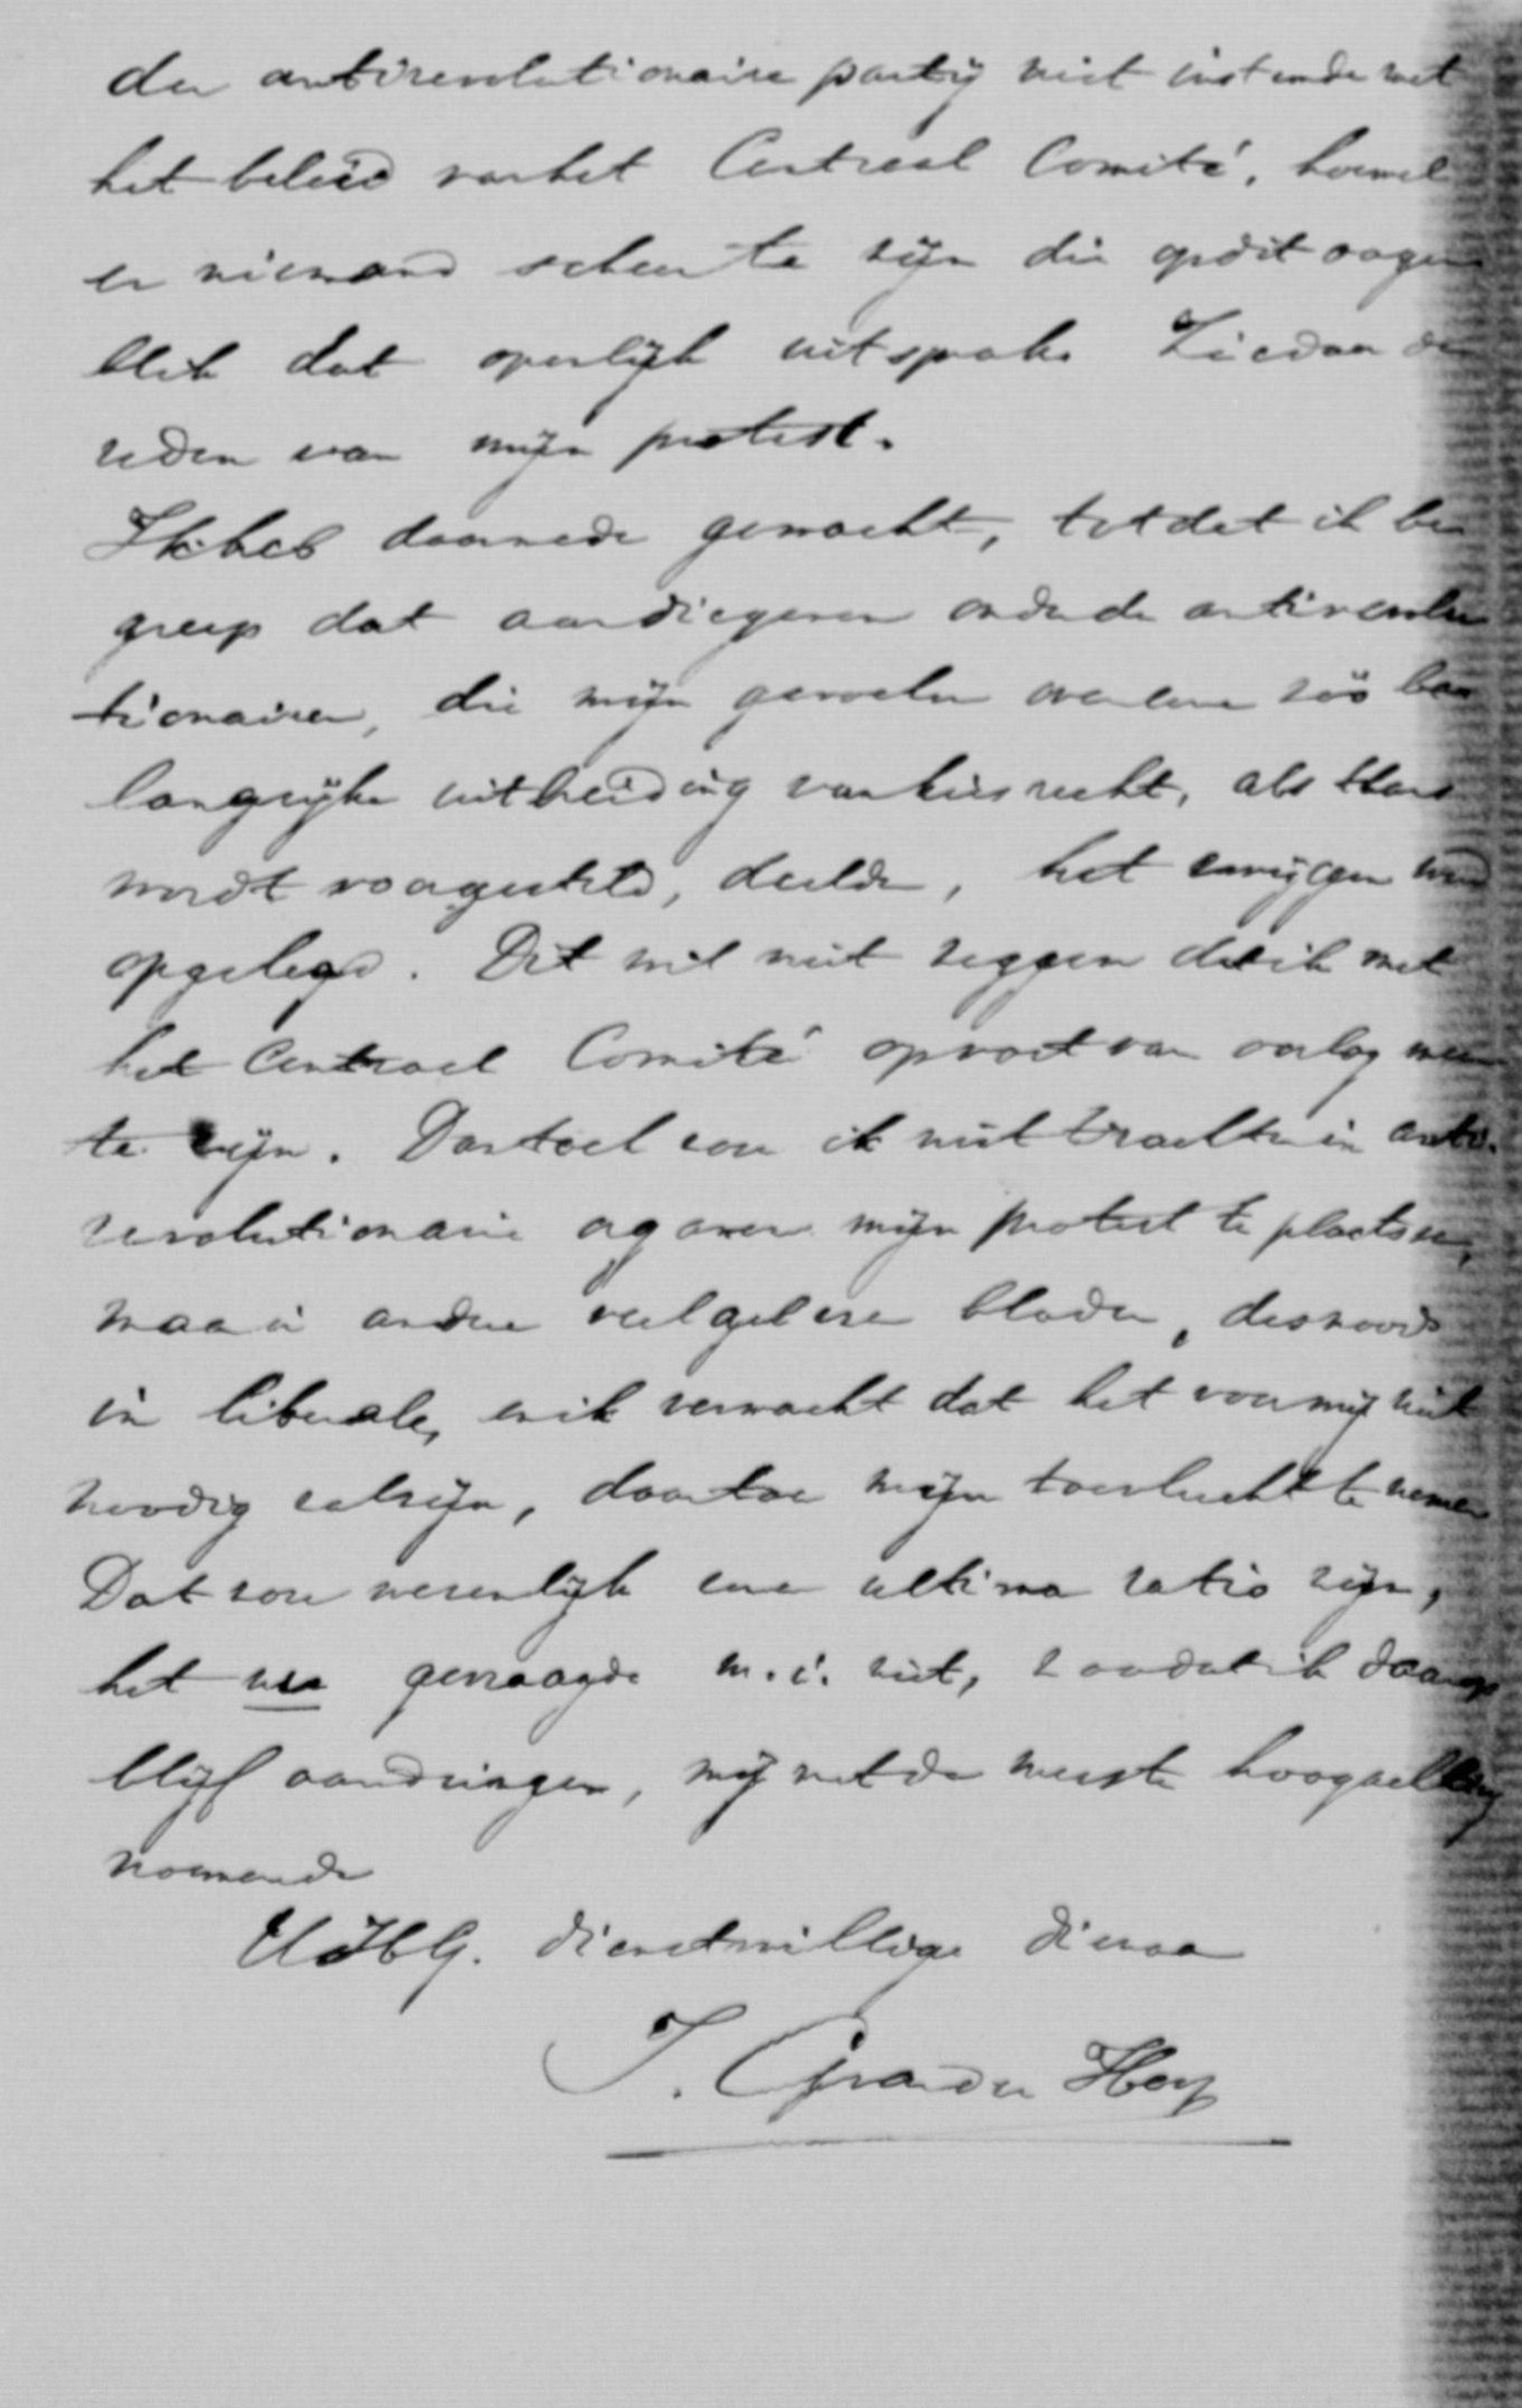 der antirevolutionaire partij niet instemde met
het beleid van het Centraal Comité, hoewel
er niemand scheen te zijn die op dit oogen
blik dat openlijk uitsprak. Ziedaar de
reden van mijn protest.
Ik heb daarmede gewacht, totdat ik be
greep dat aan diegenen onder de antirevolu
tionairen, die mijn gevoelen over eene zóó be
langrijke uitbreiding van kiesrecht, als thans
wordt voorgesteld, deelden, het zwijgen werd
opgelegd. Dit wil niet zeggen dat ik met
het Centraal Comité op voet van oorlog
te zijn. zou ik niet trachten in anti-
revolutionaire organen mijn protest te plaatsen,
maar in andere veelgelezen bladen, desnoods
in liberale, en ik verwacht dat het voor mij niet
noodig zal zijn, daartoe mijn toevlucht te nemen
Dat zou wezenlijk eene ultima ratio zijn,
het gevraagde m.i. niet, zoodat ik daarop
blijf aandringen, mij met de meeste hoogachting
noemende
UHblG. dienstwillige dienaar